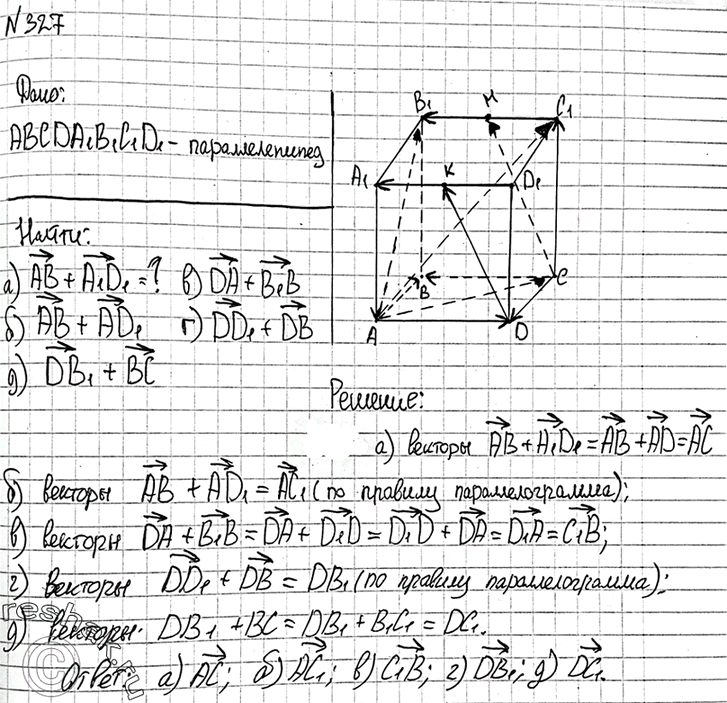 N 327
Дано:
ABCDA₁B₁C₁D₁ – параллелепипед
Найти:
а) AB + A₁D₁ = ? в) DA + B₁B
б) AB + AD₁ г) DD₁ + DB
д) DB₁ + BC
B₁ M C₁
A₁ K D₁
B C
A D
Решение:
а) векторы AB + A₁D₁ = AB + AD = AC
б) векторы AB + AD₁ = AC₁ (по правилу параллелограмма);
в) векторы DA + B₁B = DA + D₁D = D₁D + DA = D₁A = C₁B;
г) векторы DD₁ + DB = DB₁ (по правилу параллелограмма);
д) векторы DB₁ + BC = DB₁ + B₁C₁ = DC₁.
Ответ: а) AC; б) AC₁; в) C₁B; г) DB₁; д) DC₁.